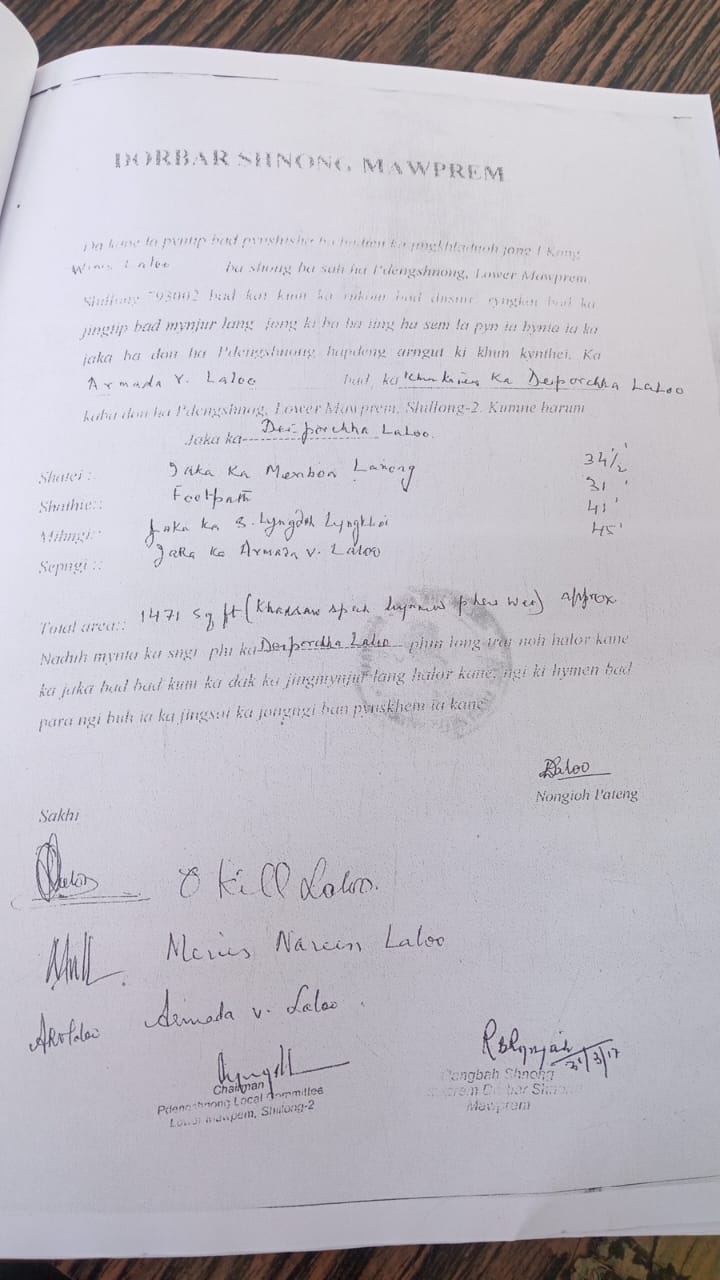 DORBAR SHNONG MAWPREM
Da kane la pyntip bad pynshisha ba hadien ka jingkhladnoh jong I Kong
Laloo ba shong ba sah ha Pdengshnong, Lower Mawprem,
Shillong 793002 bad kat kum ka rukom bad dustur, ryngkat bad ka
jingtip bad mynjur lang jong ki ba ha iing ha sem la pyn ia bynta ia ka
jaka ba don ha Pdengshnong hapdeng arngut ki khun kynthei. Ka
Armada V. Laloo bad, ka Ka Desporchha Laloo
kaba don ha Pdengshnog, Lower Mawprem, Shillong-2. Kumne harum
Jaka ka Desporchha Laloo.
Shatei : Jaka Ka Laloo 34½'
Shathie:: Footpath 31'
Mihngi:: Jaka ka S. Lyngdoh 41'
Sepngi :: Jaka Ka Armada V. Laloo 45'
Total area:: 1471 sq ft ( ) approx
Naduh mynta ka sngi phi ka Desporchha Laloo phin long trai noh halor kane
ka jaka bad bad kum ka dak ka jingmynjur lang halor kane, ngi ki hymen bad
para ngi buh ia ka jingsoi ka jongngi ban pynskhem ia kane
Laloo
Nongioh Pateng
Sakhi
O Kill Laloo.
Laloo
Armada V. Laloo.
31/3/17
Chairman
Pdengshnong Local Committee
Lower Mawprem, Shillong-2
Rangbah Shnong
Mawprem Dorbar Shnong
Mawprem